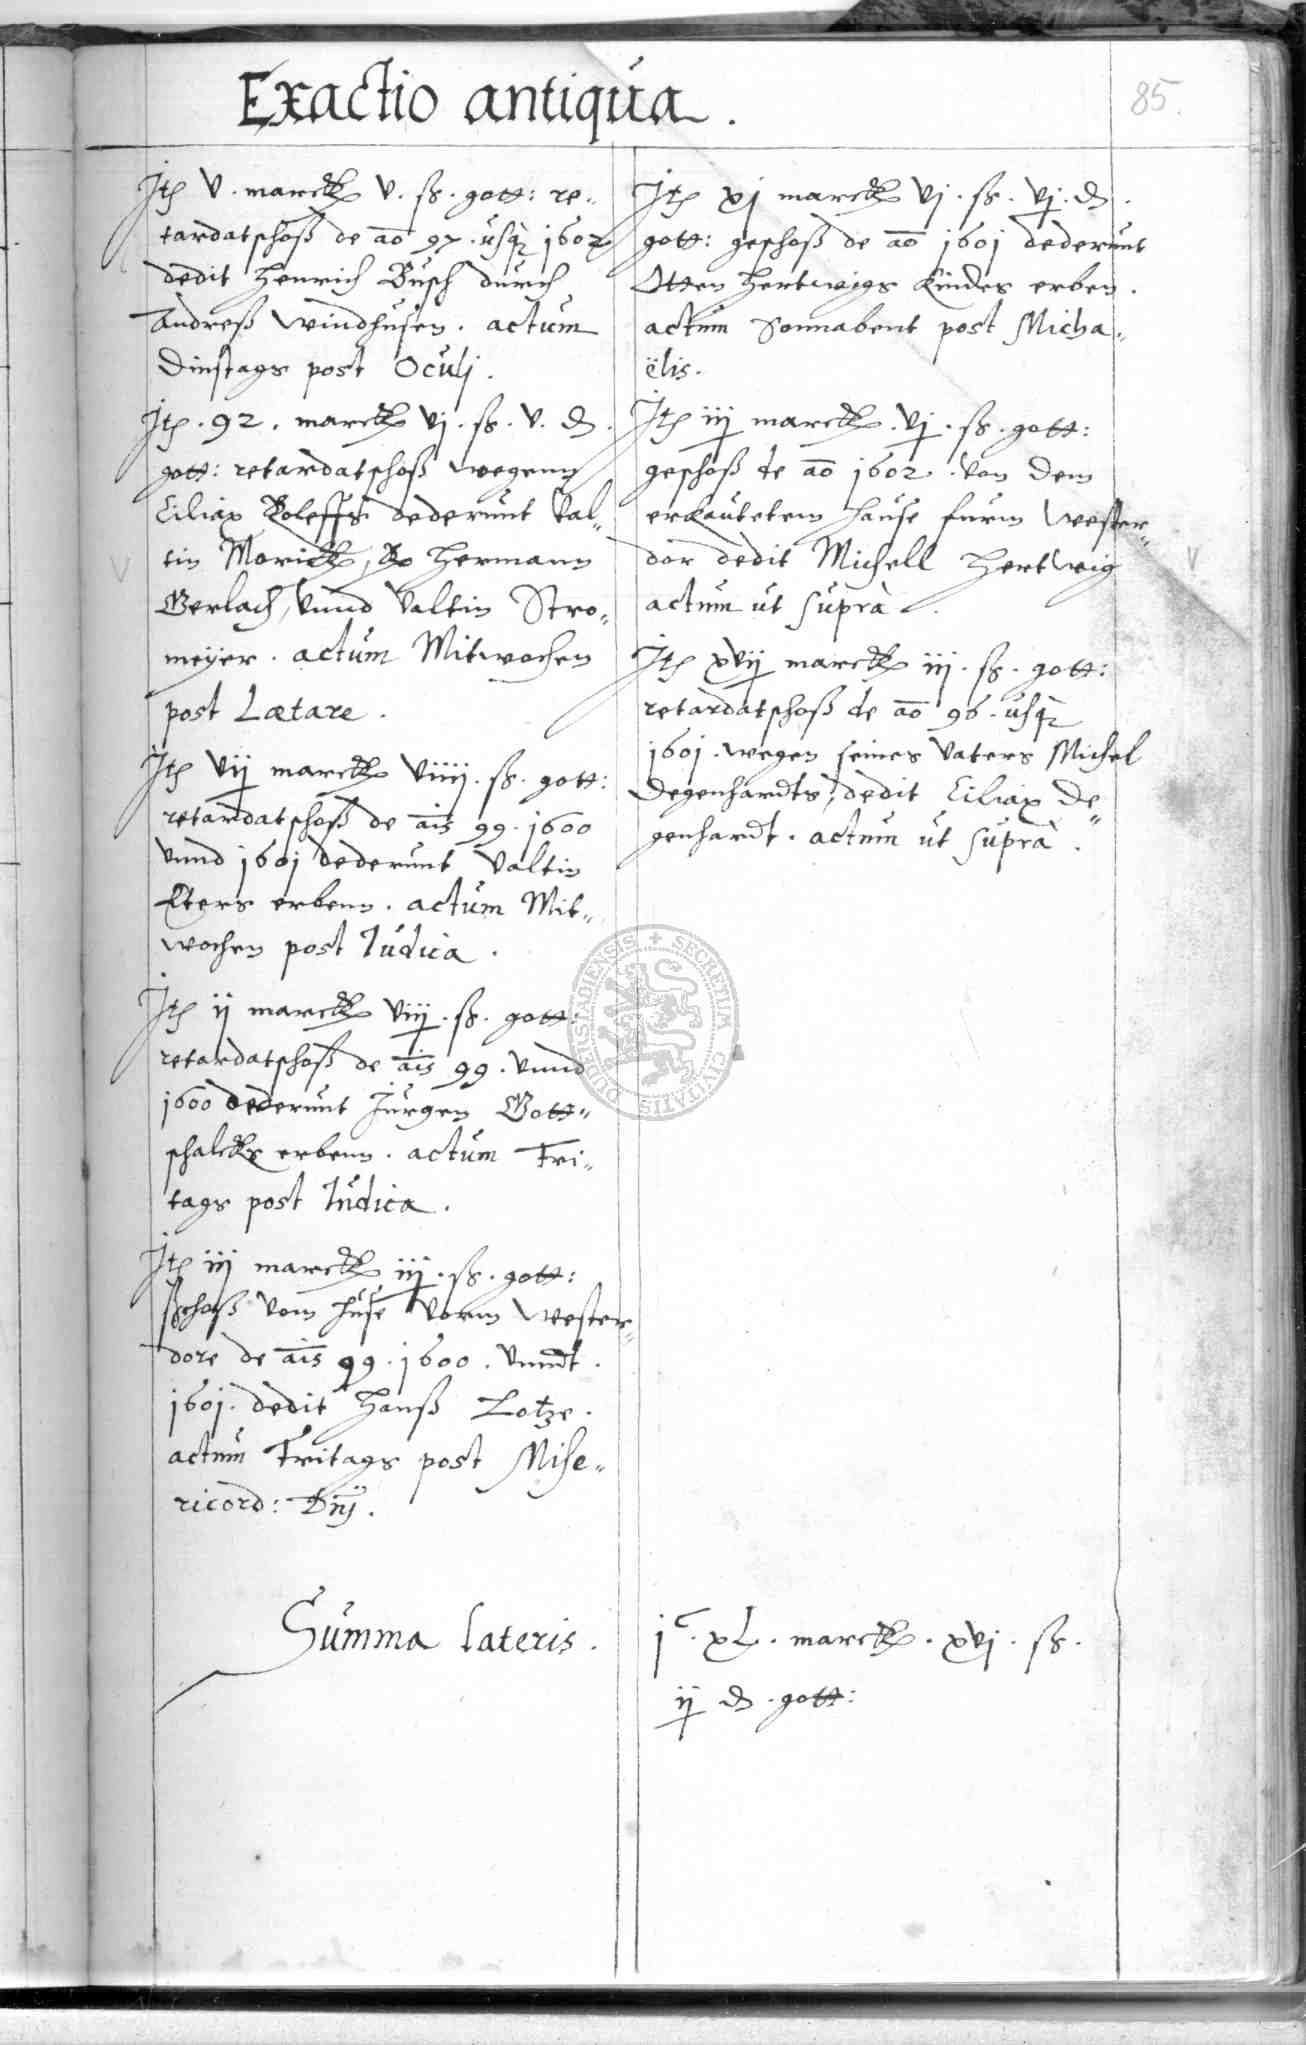 Exactio antiqua.
85.
Itē v. marck v. ß. gott: re„
tardatschoß de ao 97. usq, 1602
dedit Henrich Busch durch
Andreß Windhusen. actum
Dinstags post Oculj.
Itē. 92. marck vj. ß. v. d.
gott: retardatschoß wegenn
Ciliax Roleffs dederunt Val„
tin Morick, Hermann
Gerlach, vnnd Valtin Stro„
meÿer. actum Mitwochen
post Lætare.
Itē vij marck viiij. ß. gott:
retardatschoß de ais 99. 1600
vnnd 1601 dederunt Valtin
Eters erbenn. actum Mit„
wochen post Iudica.
Itē ij marck viij. ß. gott:
retardatschoß de ais 99. vnnd
1600 dederunt Jurgen Gott„
schalcks erbenn. actum Fri„
tags post Iudica.
Itē iij marck iij. ß. gott:
schoß vom huse vorm Wester„
dore de ais 99. 1600. vnndt.
1601. dedit Hanß Lotze.
actum Fritags post Mise„
ricord: Dnj.
Itē xj marck vj. ß. vj. d.
gott: geschoß de ao 1601 dederunt
Otten Hertwigs Kindes erben.
actum Sonnabent post Micha„
ëlis.
Itē iij marck. vj. ß. gott:
geschoß de ao 1602. von dem
erkautetem hause furm Wester„
dor dedit Michell Hertwig
actum ut suprà.
Itē xvij marck iij. ß. gott:
retardatschoß de ao 96. usq,
1601. wegen seines Vaters Michel
Degenhardts, dedit Ciliax De„
genhardt. actum ut suprà.
SECRETUM CIVITATIS DUDERSTADIENSIS
Summa lateris.
jᶜ. xL. marck. xvj. ß.
ij d. gott: